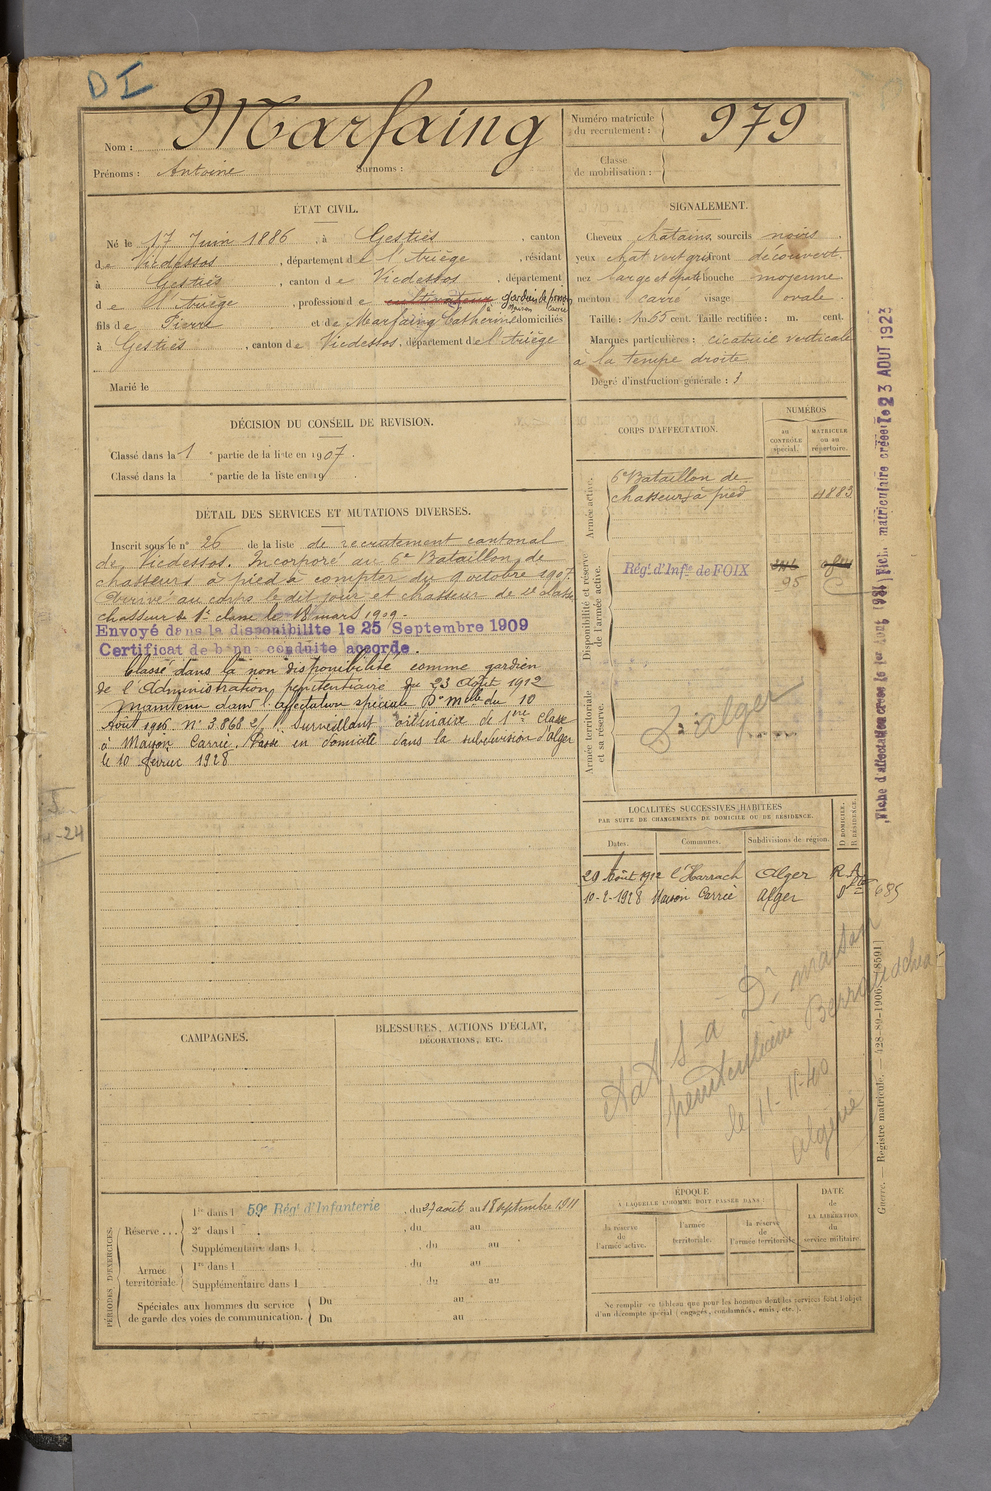 DI
Nom : Marfaing
Prénoms : Antoine Surnoms :
Numéro matricule du recrutement : 979
Classe de mobilisation :
ÉTAT CIVIL.
Né le 17 Juin 1886, à Gestiès, canton
de Vicdessos, département de l'Ariège, résidant
à Gestiès, canton de Vicdessos, département
de l'Ariège, profession de cultivateur gardien de prison
à Maison Carrée
fils de Pierre et de Marfaing Catherine domiciliés
à Gestiès, canton de Vicdessos, département de l'Ariège
Marié le
SIGNALEMENT.
Cheveux chatains, sourcils noirs.
yeux chat vert gris front découvert.
nez large et épaté bouche moyenne
menton carré visage ovale.
Taille : 1m. 65 cent. Taille rectifiée : m. cent.
Marques particulières : cicatrice verticale
à la tempe droite
Degré d'instruction générale : 3
DÉCISION DU CONSEIL DE REVISION.
Classé dans la 1e partie de la liste en 1907.
Classé dans la e partie de la liste en 19
DÉTAIL DES SERVICES ET MUTATIONS DIVERSES.
Inscrit sous le n° 26 de la liste de recrutement cantonal
de Vicdessos. Incorporé au 6e Bataillon de
chasseurs à pied à compter du 9 octobre 1907.
Arrivé au corps le dit jour et chasseur de 2e classe
chasseur de 1e classe le 18 mars 1909.
Envoyé dans la disponibilité le 25 Septembre 1909
Certificat de bonne conduite accordé.
Classé dans la non disponibilité comme gardien
de l'Administration pénitentiaire du 23 Août 1912
Maintenu dans l'affectation spéciale Dn mlle du 10
Août 1916 N° 3.868 2/ Surveillant ordinaire de 1ère classe
à Maison Carrée. Passe en domicile dans la subdivision d'Alger
le 10 février 1928
CORPS D'AFFECTATION.
NUMÉROS
AU CONTRÔLE spécial.
MATRICULE ou au répertoire.
Armée active.
6e Bataillon de
chasseurs à pied 4883
Disponibilité et réserve de l'armée active.
Régt. d'Infie de FOIX
95
Armée territoriale et sa réserve.
alger
LOCALITÉS SUCCESSIVES HABITÉES
PAR SUITE DE CHANGEMENTS DE DOMICILE OU DE RÉSIDENCE.
Dates. Communes. Subdivisions de région. D. DOMICILE. R. RÉSIDENCE.
29 Août 1912 l'Harrach Alger R
10-2-1928 Maison Carrée Alger D
685
D. maison
pénitentiaire Berrouaghia
le 11-11-40
algérie
-24
CAMPAGNES.
BLESSURES, ACTIONS D'ÉCLAT,
DÉCORATIONS, ETC.
PÉRIODES D'EXERCICES.
Réserve ... 1re dans l 59e Régt d'Infanterie, du 27 août au 18 septembre 1911
2e dans l , du au
Supplémentaire dans l , du au
Armée territoriale. 1re dans l , du au
Supplémentaire dans l , du au
Spéciales aux hommes du service
de garde des voies de communication. Du au
Du au
ÉPOQUE
À LAQUELLE L'HOMME DOIT PASSER DANS :
la réserve de l'armée active.
l'armée territoriale.
la réserve de l'armée territoriale.
DATE
de
LA LIBÉRATION
du
service militaire.
Ne remplir ce tableau que pour les hommes dont les services font l'objet
d'un décompte spécial (engagés, condamnés, omis, etc.).
Fiche matriculaire créée le 23 AOUT 1923
Fiche d'affectation créée le 1er Aout 1931
Guerre. — Registre matricule. — 428-89-1906. [8591]